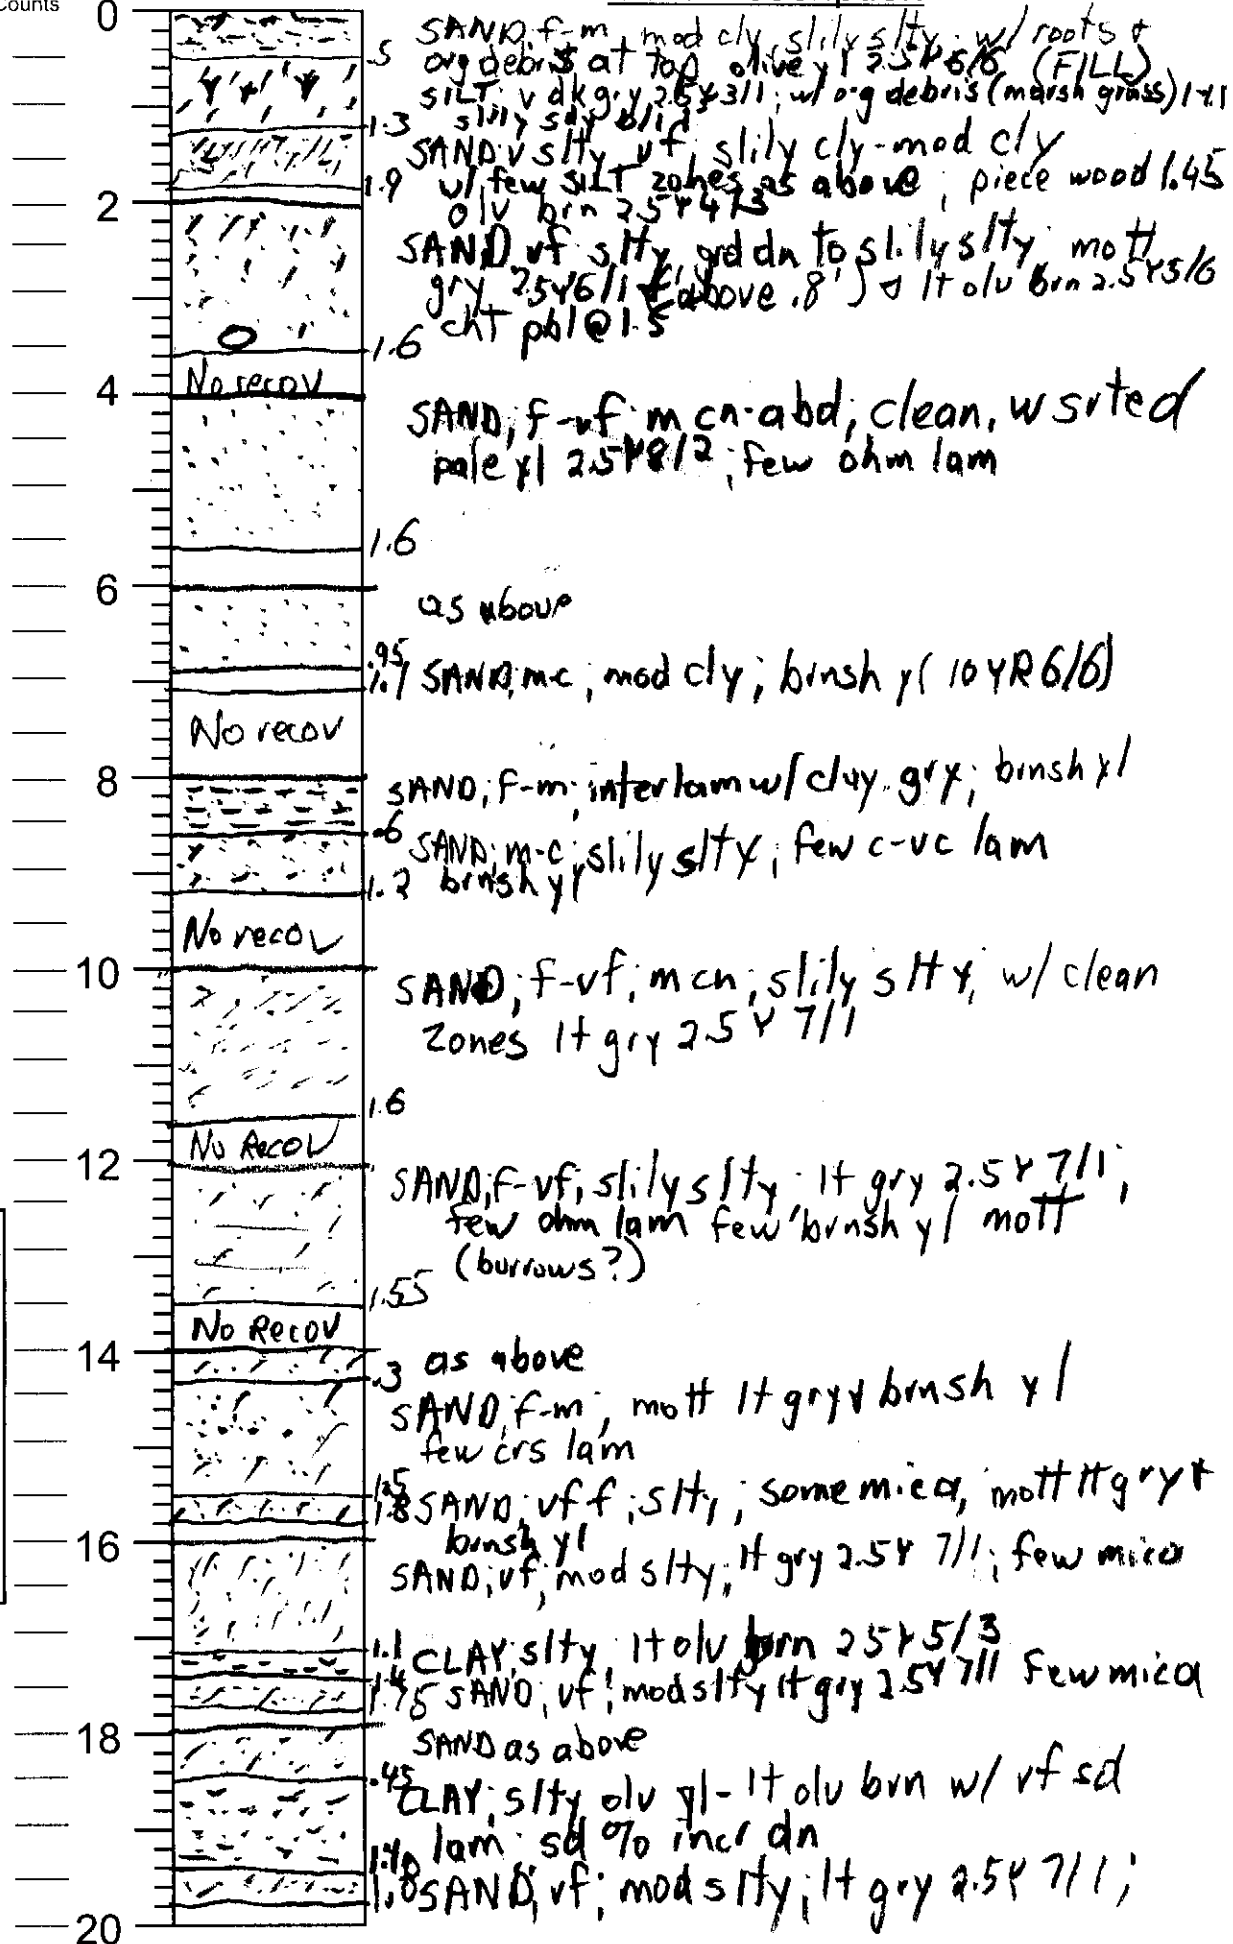 Counts
0
SAND; f-m, mod cly, slily slty; w/ roots +
.5 org debris at top olive yl 2.5Y6/6 (FILL)
SILT: v dk gry 2.5Y3/1; w/ org debris (marsh grass)
1.3 slily sdy
SAND: v slty, vf, slily cly-mod cly
1.9 w/ few SILT zones as above; piece wood 1.45
2 olv brn 2.5Y4/3
SAND vf slty, grd dn to slily slty, mott
gry 2.5Y6/1 (above .8') & lt olv brn 2.5Y5/6
cht pbl @ 1.5
1.6
No recov
4
SAND; f-vf; m cn-abd; clean, w srted
pale yl 2.5Y8/2; few ohm lam
1.6
6
as above
.95
1.1 SAND; m-c, mod cly; brnsh yl 10YR6/6)
No recov
8
SAND; f-m; interlam w/ clay, gry; brnsh yl
.6
SAND; m-c; slily slty; few c-vc lam
1.2 brnsh yl
No recov
10
SAND; f-vf; m cn; slily slty, w/ clean
zones lt gry 2.5Y 7/1
1.6
No Recov
12
SAND; f-vf; slily slty; lt gry 2.5Y 7/1;
few ohm lam few brnsh yl mott
(burrows?)
1.55
No Recov
14
as above
.3
SAND; f-m; mott lt gry & brnsh yl
few crs lam
1.5
1.8 SAND; vf f; slty; some mica; mott lt gry +
brnsh yl
16
SAND; vf; mod slty; lt gry 2.5Y 7/1; few mica
1.1 CLAY; slty lt olv brn 2.5Y5/3
1.4
1.75 SAND; vf; mod slty lt gry 2.5Y7/1 few mica
18
SAND as above
.45
CLAY; slty olv yl-lt olv brn w/ vf sd
lam; sd % incr dn
1.8 SAND; vf; mod slty; lt gry 2.5Y 7/1;
20